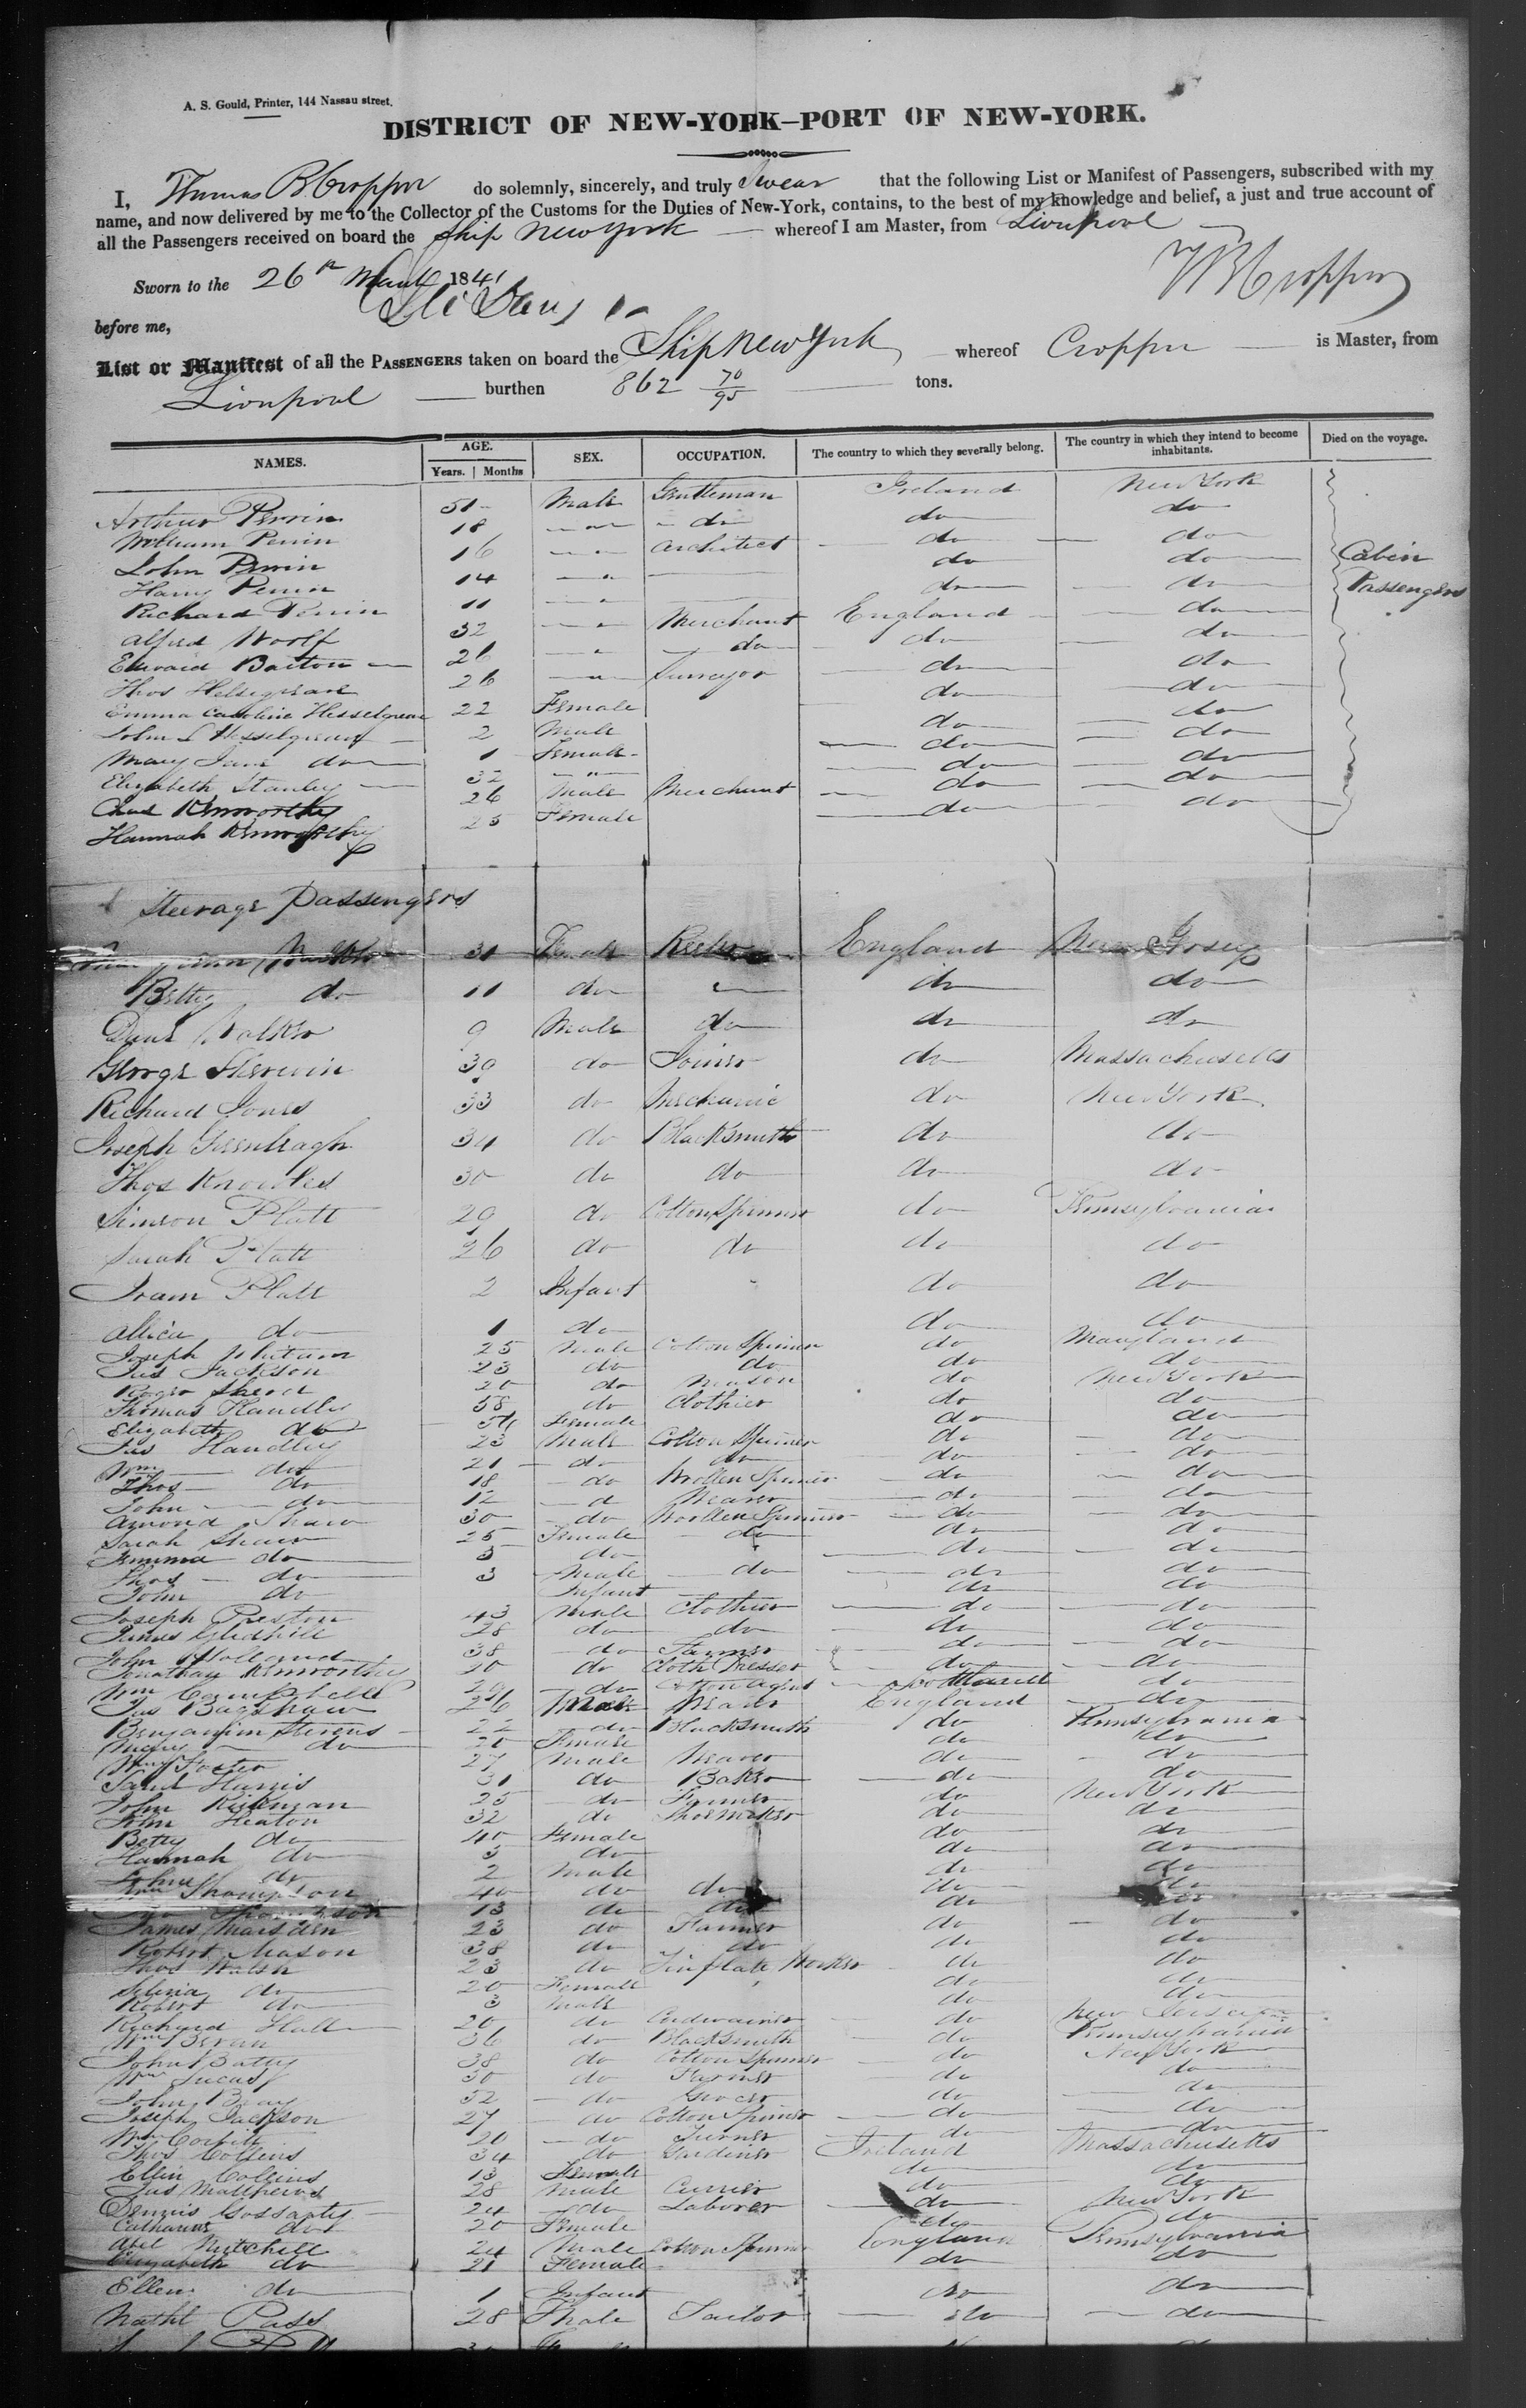 A. S. Gould, Printer, 144 Nassau street.
DISTRICT OF NEW-YORK—PORT OF NEW-YORK.
I, Thomas B Cropper do solemnly, sincerely, and truly Swear that the following List or Manifest of Passengers, subscribed with my
name, and now delivered by me to the Collector of the Customs for the Duties of New-York, contains, to the best of my knowledge and belief, a just and true account of
all the Passengers received on board the Ship New York whereof I am Master, from Liverpool
Sworn to the 26th 1841
T B Cropper
before me,
List or Manifest of all the PASSENGERS taken on board the Ship New York whereof Cropper is Master, from
Liverpool burthen 862 70/95 tons.
NAMES. AGE. Years. Months SEX. OCCUPATION. The country to which they severally belong. The country in which they intend to become inhabitants. Died on the voyage.
Arthur Perrin 51 Male Gentleman Ireland New York
William Perrin 18 " do do do
John Perrin 16 " Architect do do
Harry Perrin 14 " do do Cabin
Richard Perrin 11 " do do Passengers
Alfred Woolf 32 " Merchant England do
Edward Barton 26 " do do do
Thos Helsegrave 26 " Surveyor do do
Emma Caroline Hesselgreave 22 Female do do
John S Hesselgreave 2 Male do do
Mary Jane do 1 Female do do
Elizabeth Stanley 32 " do do
Chas Kenworthy 26 Male Merchant do do
Hannah Kenworthy 25 Female do do
Steerage Passengers
31 Female England New Jersey
Betty do 11 do do do
Walker 9 Male do do do
George Sherwin 30 do Joiner do Massachusetts
Richard Jones 33 do Mechanic do New York
Joseph Greenhagh 34 do Blacksmith do do
Thos Knowles 30 do do do do
Simeon Platt 29 do Cotton Spinner do Pennsylvania
Sarah Platt 26 do do do do
Iram Platt 2 Infant do do
Allicia do 1 do do do
Joseph Whitam 25 Male Cotton Spinner do Maryland
Jas Jackson 23 do do do do
Roger 20 do Mason do New York
Thomas Handley 58 do Clothier do do
Elizabeth do Female do do
Jas Handley 23 Male Cotton Spinner do do
Wm do 21 do do do do
Thos do 18 do Woollen Spinner do do
John do 12 do Weaver do do
Amond Shaw 30 do Woollen Spinner do do
Sarah Shaw 25 Female do do do
Jemima do 5 do do do
Thos do 3 Male do do do
John do Infant do do
Joseph Preston 43 Male Clothier do do
James Gledhill 28 do do do do
John Holland 38 do Farmer do do
Jonathan Kenworthy 20 do Cloth Dresser do do
Wm Campbell 29 do Cotton Agent Scotland do
Jas Bagshaw 26 Male Weaver England do
Benjamin Stevens 22 do Blacksmith do Pennsylvania
Mary do 20 Female do do
Wm Foster 27 Male Weaver do do
Saml Harris 31 do Baker do do
John Rickman 25 do Farmer do New York
John Heaton 32 do Shoemaker do do
Betty do 40 Female do do
Hannah do 5 do do do
John do 2 Male do do
Wm Thompson 40 do do do do
Thompson 13 do do do do
James Marsden 23 do Farmer do do
Robert Mason 38 do do do do
Thos Walsh 23 do Tin plate Worker do do
Selina do 20 Female do do
Robert do 3 Male do do
Richard Hall 20 do Cordwainer do New Jersey
Wm Bevan 36 do Blacksmith do Pennsylvania
John Batty 38 do Cotton Spinner do New York
Wm Lucas 30 do Farmer do do
John Bray 52 do Grocer do do
Joseph Jackson 27 do Cotton Spinner do do
Wm Corbitt 20 do Turner do do
Thos Collins 34 do Gardiner Ireland Massachusetts
Ellin Collins 13 Female do do
Jas Matthews 28 Male Currier do do
Dennis Gossarty 24 do Laborer do New York
Catharine do 20 Female do do
Abel Mitchell 24 Male Cotton Spinner England Pennsylvania
Elizabeth do 21 Female do do
Ellen do 1 Infant do do
Nathl Pass 28 Male Tailor do do